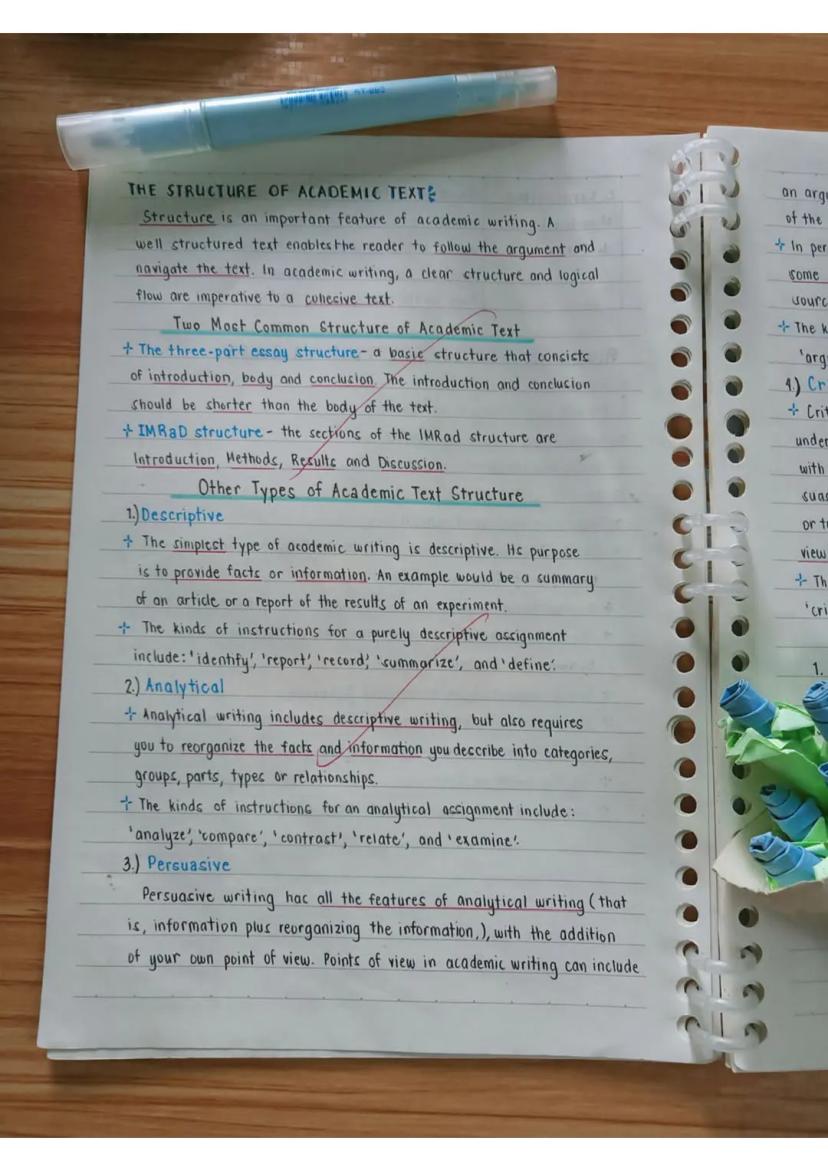 THE STRUCTURE OF ACADEMIC TEXT:
Structure is an important feature of academic writing. A
well structured text enables the reader to follow the argument and
navigate the text. In academic writing, a clear structure and logical
flow are imperative to a cohesive text.
Two Most Common Structure of Academic Text
+ The three-part essay structure - a basic structure that consists
of introduction, body and conclusion. The introduction and conclusion
should be shorter than the body of the text.
+ IMRaD structure - the sections of the IMRad structure are
Introduction, Methods, Results and Discussion.
Other Types of Academic Text Structure
1.) Descriptive
+ The simplest type of academic writing is descriptive. Its purpose
is to provide facts or information. An example would be a summary
of an article or a report of the results of an experiment.
+ The kinds of instructions for a purely descriptive assignment
include: 'identify', 'report', 'record', 'summarize', and 'define'.
2.) Analytical
+ Analytical writing includes descriptive writing, but also requires
you to reorganize the facts and information you describe into categories,
groups, parts, types or relationships.
+ The kinds of instructions for an analytical assignment include:
'analyze', 'compare', 'contrast', 'relate', and 'examine'.
3.) Persuasive
Persuasive writing has all the features of analytical writing (that
is, information plus reorganizing the information,), with the addition
of your own point of view. Points of view in academic writing can include
an arg
of the
+ In per
some
sourc
+ The k
'arg
4.) Cr
+ Crit
under
with
suas
or t
view
+ Th
'cri
1.